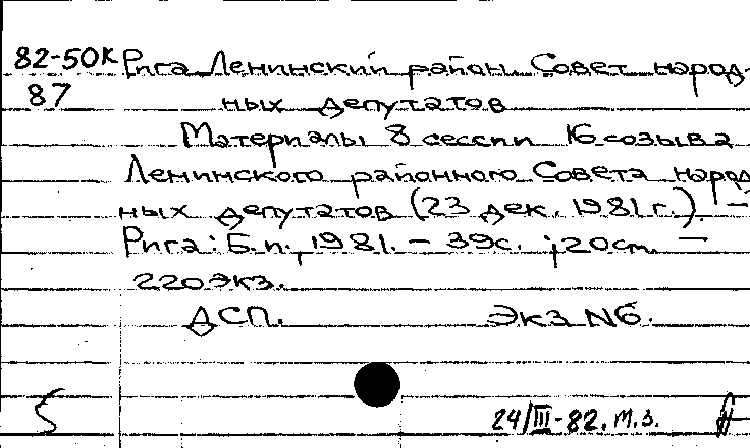 82-50К Рига. Ленинский район. Совет народ-
87 ных депутатов
Материалы 8 сессии 16 созыва
Ленинского районного Совета народ
ных депутатов (23 дек. 1981 г.). —
Рига: Б.и., 1981. – 39с. ; 20см. —
220экз.
ДСП. Экз. N6.
5 24/III-82. т.з.